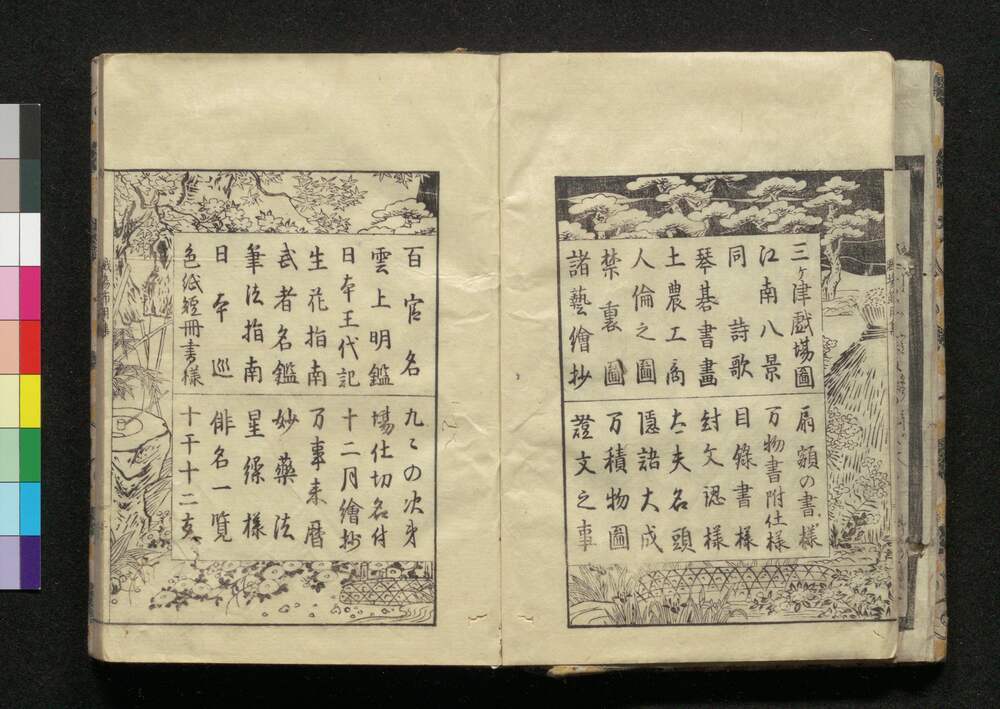 三ヶ津戯場圖
江南八景
同詩歌
琴棊書畫
士農工商
人倫之圖
禁裏圖
諸藝繪抄
扇額の書様
万物書附仕様
目錄書様
封文認様
太夫名頭
隱語大成
万積物圖
證文之事
百官名
雲上明鑑
日本王代記
生花指南
武者名鑑
筆法指南
日本巡
色紙短冊書様
九々の次第
場仕切名付
十二月繪抄
万事来暦
妙藥法
星繰様
俳名一覽
十干十二支